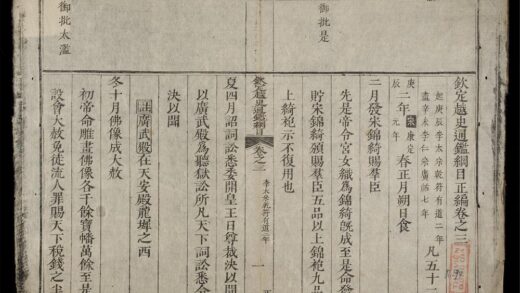 御批是
御批太濫
欽定越史通鑑綱目正編卷之三
起庚辰李太宗乾符有道二年
盡辛未李仁宗廣祐七年
凡五十二
庚辰二年宋康定元年春正月朔日食
二月發宋錦綺賜羣臣
先是帝令宮女織爲錦綺旣成至是命發
貯宋錦綺頒賜羣臣五品以上錦袍九品
上綺袍示不復用也
欽定越史通鑑綱目 卷之三 李太宗乾符有道二年 一
夏四月詔詞訟悉委開皇王日尊裁決以聞
以廣武殿爲聽獄訟所凡天下詞訟悉令
決以聞
註廣武殿在天安殿龍墀之西
冬十月佛像成大赦
初帝命雕畫佛像各千餘寶幡萬餘至是
設會大赦免徒流人罪賜天下稅錢之半